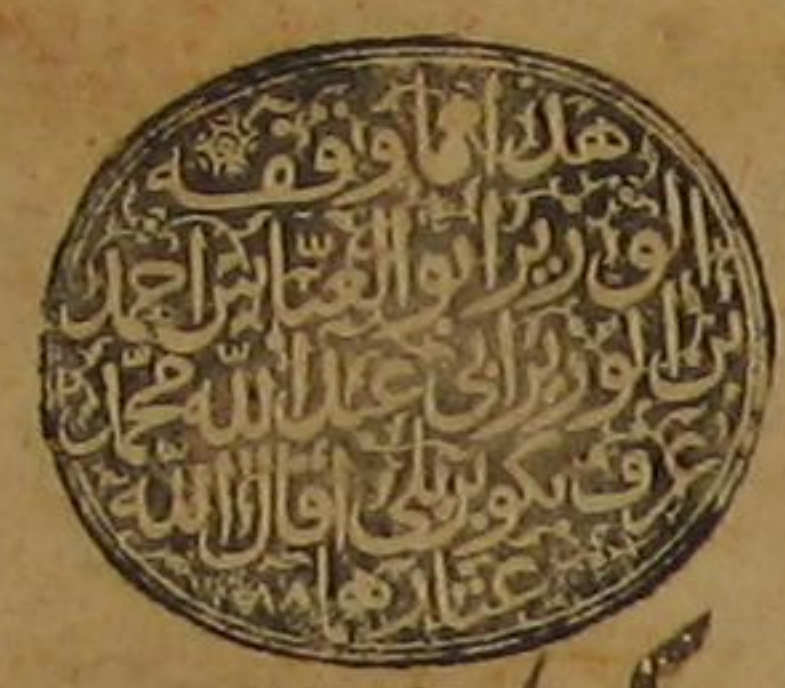 هذا مما وقفه
الوزير ابو العبّاس احمد
بن الوزير ابي عبد الله محمّد
عرف بكوبريلي اقال الله
عثارهما ١٠٨٨